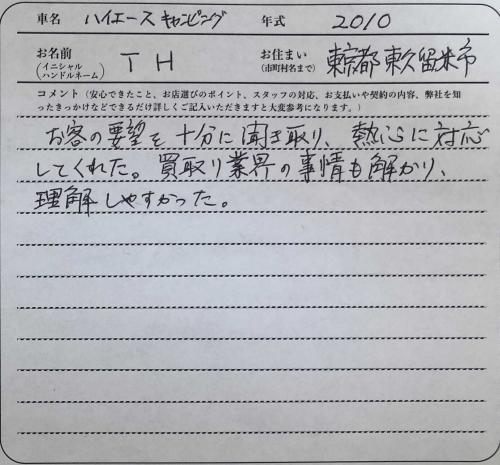 車名 ハイエースキャンピング 年式 2010
お名前 (イニシャル ハンドルネーム) T H お住まい (市町村名まで) 東京都東久留米市
コメント(安心できたこと、お店選びのポイント、スタッフの対応、お支払いや契約の内容、弊社を知
ったきっかけなどできるだけ詳しくご記入いただきますと大変参考になります。)
お客の要望を十分に聞き取り、熱心に対応
してくれた。買取り業界の事情も解かり、
理解しやすかった。